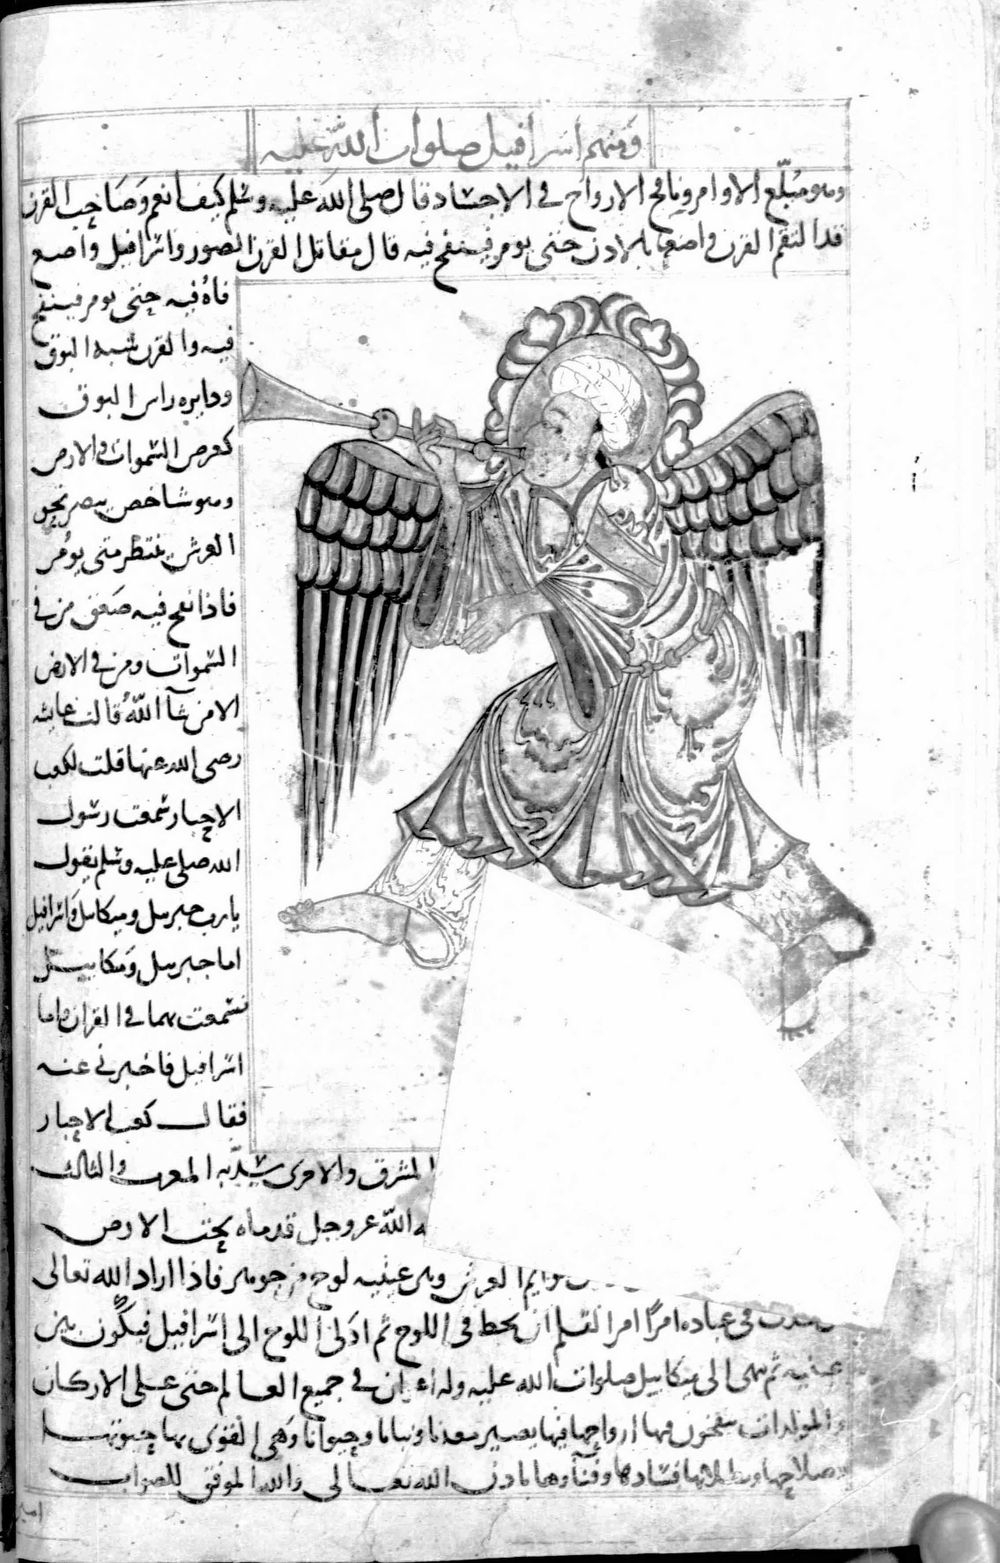 ومنهم اسرافيل صلوات الله عليه
وهو مبلغ الاوامر ونافخ الارواح في الاجساد قال صلى الله عليه وسلم كيف انعم وصاحب القرن
قد التقم القرن واصغى بالاذن حتى يومر فينفخ فيه قال مقاتل القرن الصور واسرافيل واضع
فاه فيه حتى يومر فينفخ
فيه والقرن شبه البوق
ودايره راس البوق
كعرض السموات والارض
وهو شاخص ببصره نحو
العرش ينتظر متى يومر
فاذا نفخ فيه صعق من في
السموات ومن في الارض
الا من شآ الله قالت عايشه
رضى الله عنها قلت لكعب
الاحبار سمعت رسول
الله صلى عليه وسلم يقول
يا رب جبريل وميكاييل واسرافيل
اما جبريل وميكاييل
سمعت بهما في القران واما
اسرافيل فاخبرني عنه
فقال كعب الاحبار
المشرق والاخرى يسد به المغرب والثالث
الله عز وجل قدماه تحت الارض
العرش وبين عينيه لوح من جوهر فاذا اراد الله تعالى
في عباده امرًا امر القلم ان يخط في اللوح ثم ادنى اللوح الى اسرافيل فيكون بين
عينيه ثم ينتهى الى ميكاييل صلوات الله عليه وله اعوان في جميع العالم حتى على الاركان
والمولدات ينفخون فيها ارواحها فيها يصير معدنا ونباتا وحيوانا وهى القوى بها حيوتها
صلاحها وبطلانها فسادها وفنآوها باذن الله تعالى والله الموفق للصواب